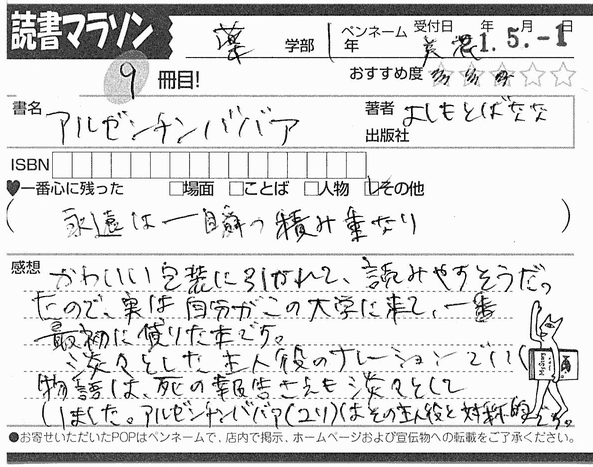 読書マラソン 薬 学部 1 年 ペンネーム 受付日 年 月 日
美濃 1. 5. -1
9 冊目! おすすめ度 ☆☆☆☆☆
書名 アルゼンチンババア 著者 よしもとばなな
出版社
ISBN
♥一番心に残った □場面 □ことば □人物 □その他
( 永遠は一瞬の積み重なり )
感想 かわいい包装に引かれて、読みやすそうだっ
たので、実は自分がこの大学に来て、一番
最初に借りた本です。
淡々とした主人役のナレーションでいく
物語は、死の報告さえも淡々として
いました。アルゼンチンババア(ユリ)はその主人役と対称的です。
●お寄せいただいたPOPはペンネームで、店内で掲示、ホームページおよび宣伝物への転載をご了承ください。